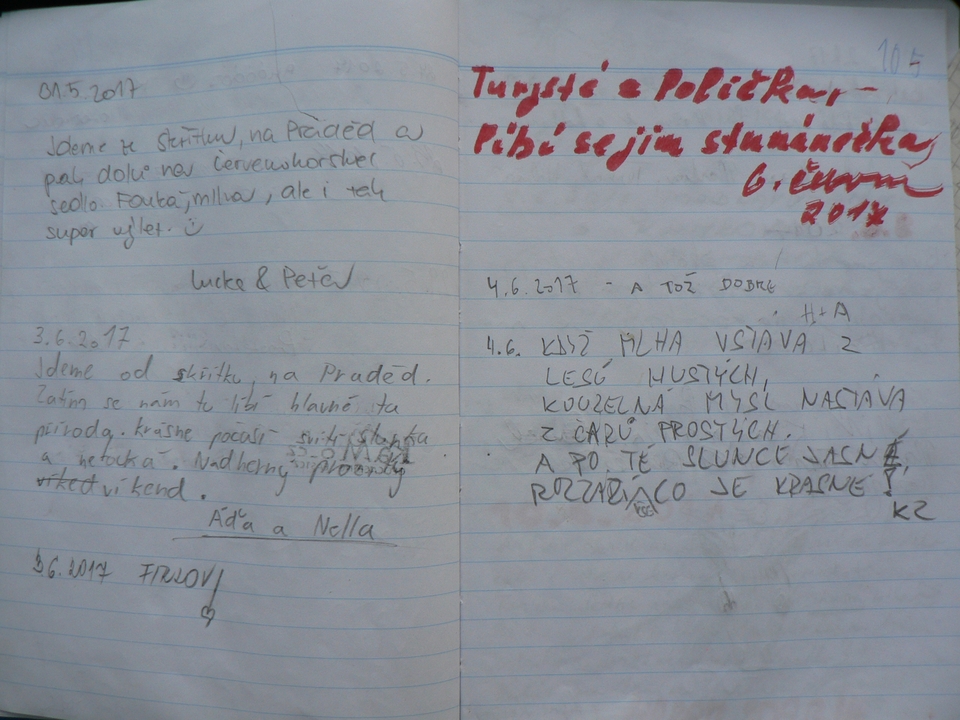 01.5.2017
Jdeme ze Skřítku, na Praděd a
pak dolů na Červenohorské
sedlo. Fouká, mlha, ale i tak
super výlet. ☺
Lucka & Peťa
3.6.2017.
Jdeme od skřítku, na Praděd.
Zatím se nám tu líbí hlavně ta
příroda. Krásné počasí svítí
a nefouká. Nadherny
víkend.
Áďa a Nella
3.6.2017 FIRLOVI
105
Turysté z Poličky, -
líbí se jim studánečka,
6. červn
2017
4.6.2017 - A TOŽ DOBRÉ
H+A
4.6. KDYŽ MLHA VSTÁVÁ Z
LESŮ HUSTÝCH,
KOUZELNÁ MYSL NASTÁVÁ
Z ČARŮ PROSTÝCH.
A PO TÉ SLUNCE JASNĚ,
ROZZÁŘÍ CO JE KRASNE!
KZ